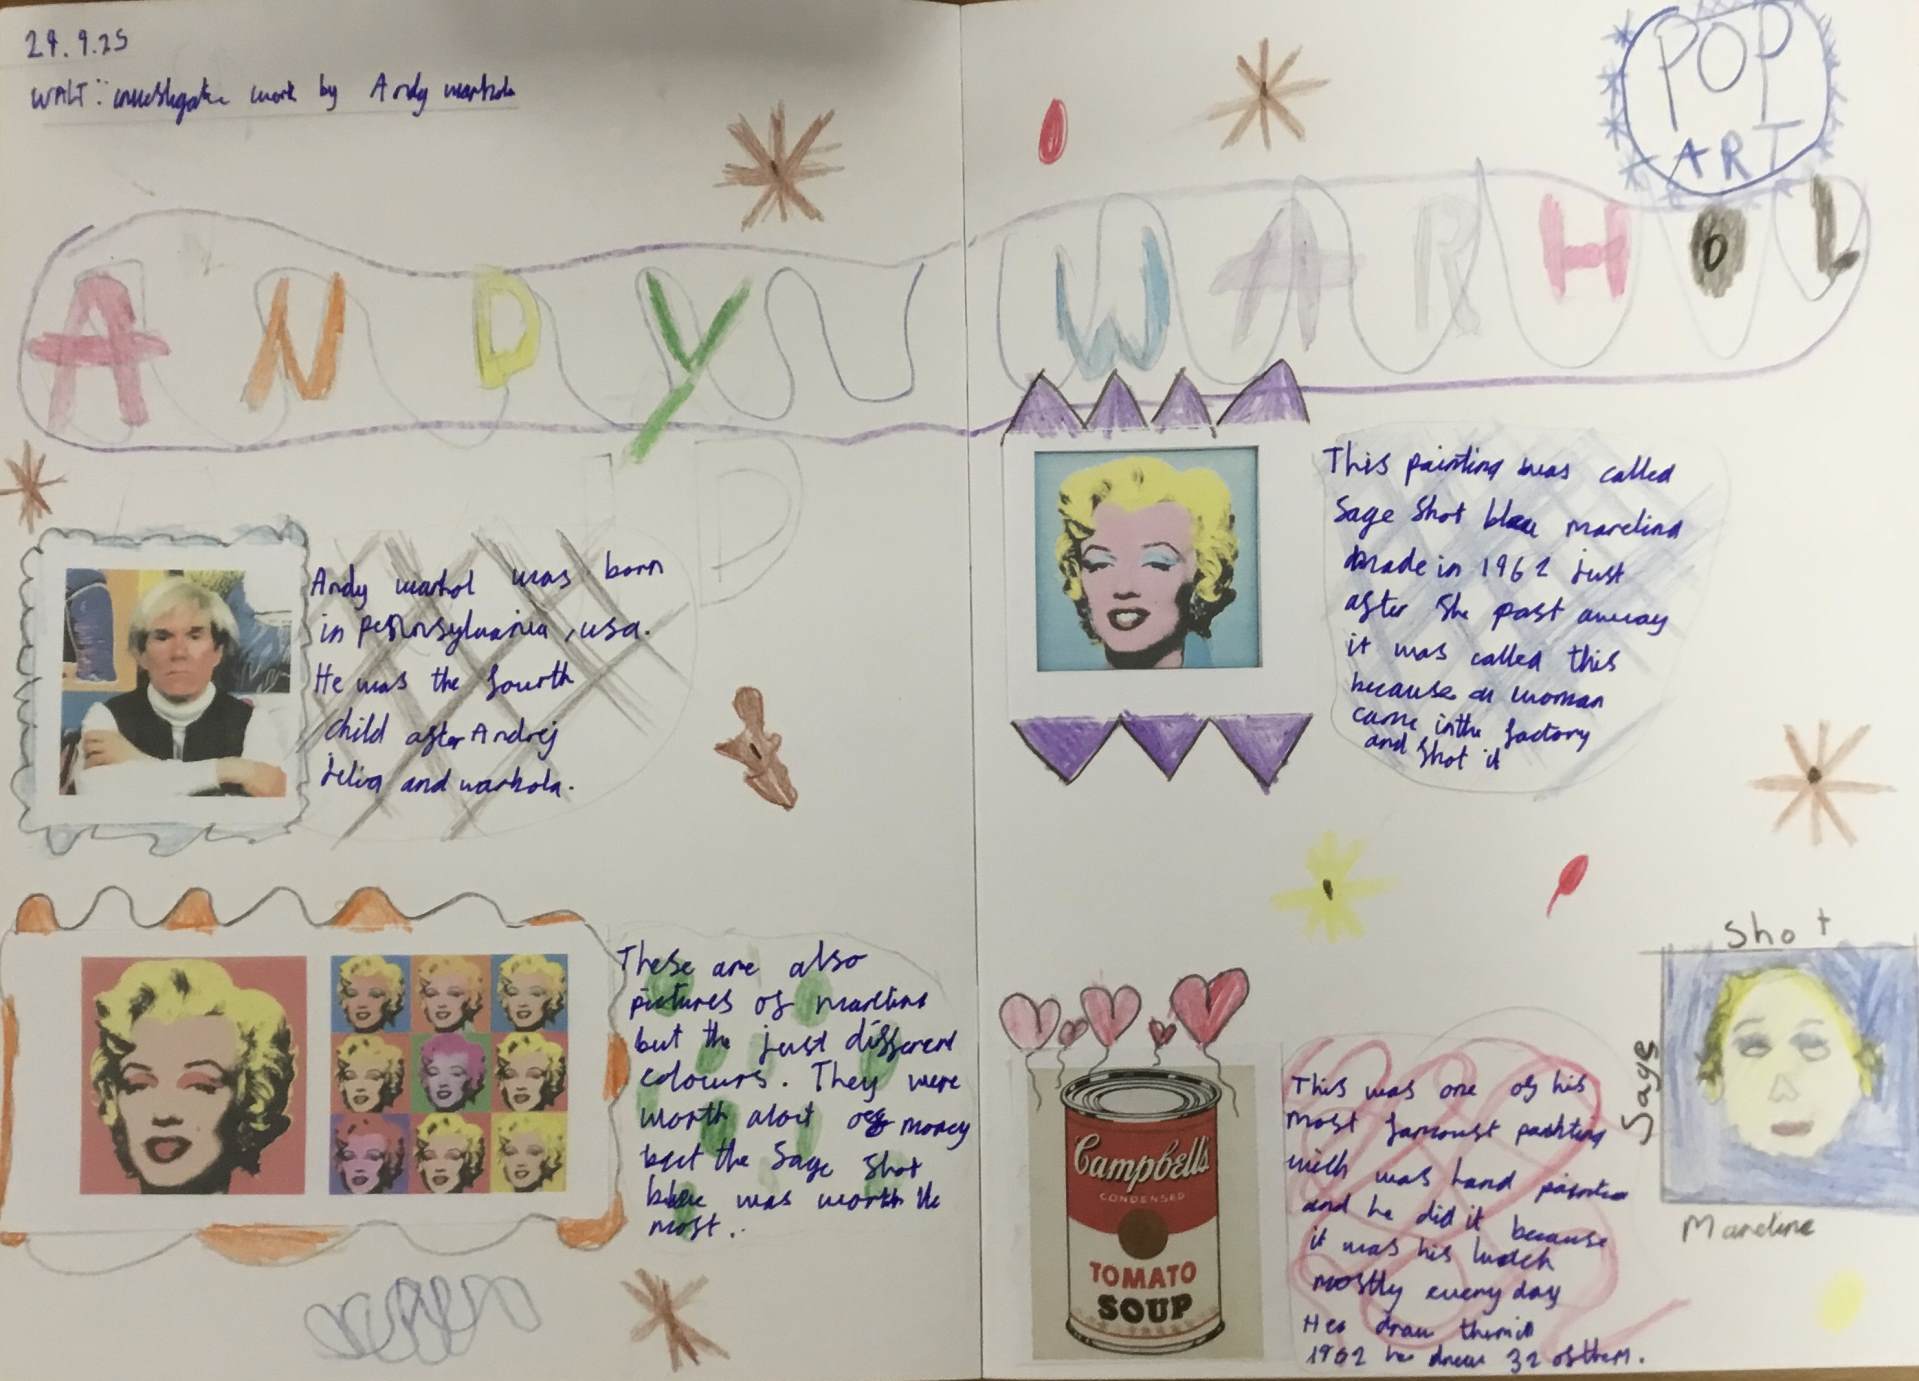 29.9.25
WALT: investigate work by Andy warhola
POP
ART
ANDY WARHOL
Andy warhol was born
in pennsylvania, usa.
He was the fourth
child after Andrej
Julia and warhola.
This painting was called
Sage Shot blue marelina
made in 1962 just
after she past away
it was called this
because a woman
came in the factory
and shot it
These are also
pictures of mareline
but the just different
colours. They were
worth alout off money
but the Sage Shot
blue was worth the
most.
Campbell's
CONDENSED
TOMATO
SOUP
This was one of his
most famoust painting
wich was hand painted
and he did it because
it was his lunch
mostly every day
He draw them in
1962 he drew 32 of them.
Shot
Sage
Mareline